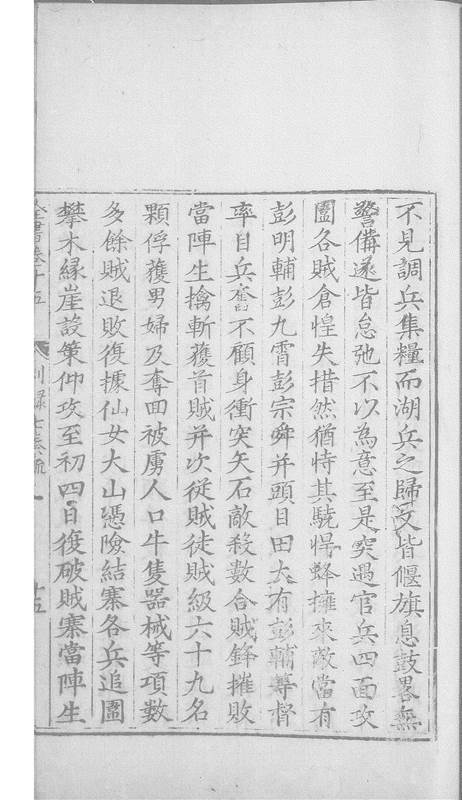 不見調兵集糧而湖兵之歸又皆偃旗息鼓畧無
警備遂皆怠弛不以為意至是突遇官兵四面攻
圍各賊倉惶失措然猶恃其驍悍蜂擁來敵當有
彭明輔彭九霄彭宗舜并頭目田大有彭輔等督
率目兵奮不顧身衝突矢石敵殺數合賊鋒摧敗
當陣生擒斬獲首賊并次從賊徒賊級六十九名
顆俘獲男婦及奪回被虜人口牛隻器械等項數
多餘賊退敗復據仙女大山憑險結寨各兵追圍
攀木緣崖設策仰攻至初四日復破賊寨當陣生
全書卷十五 別錄七奏疏 十五